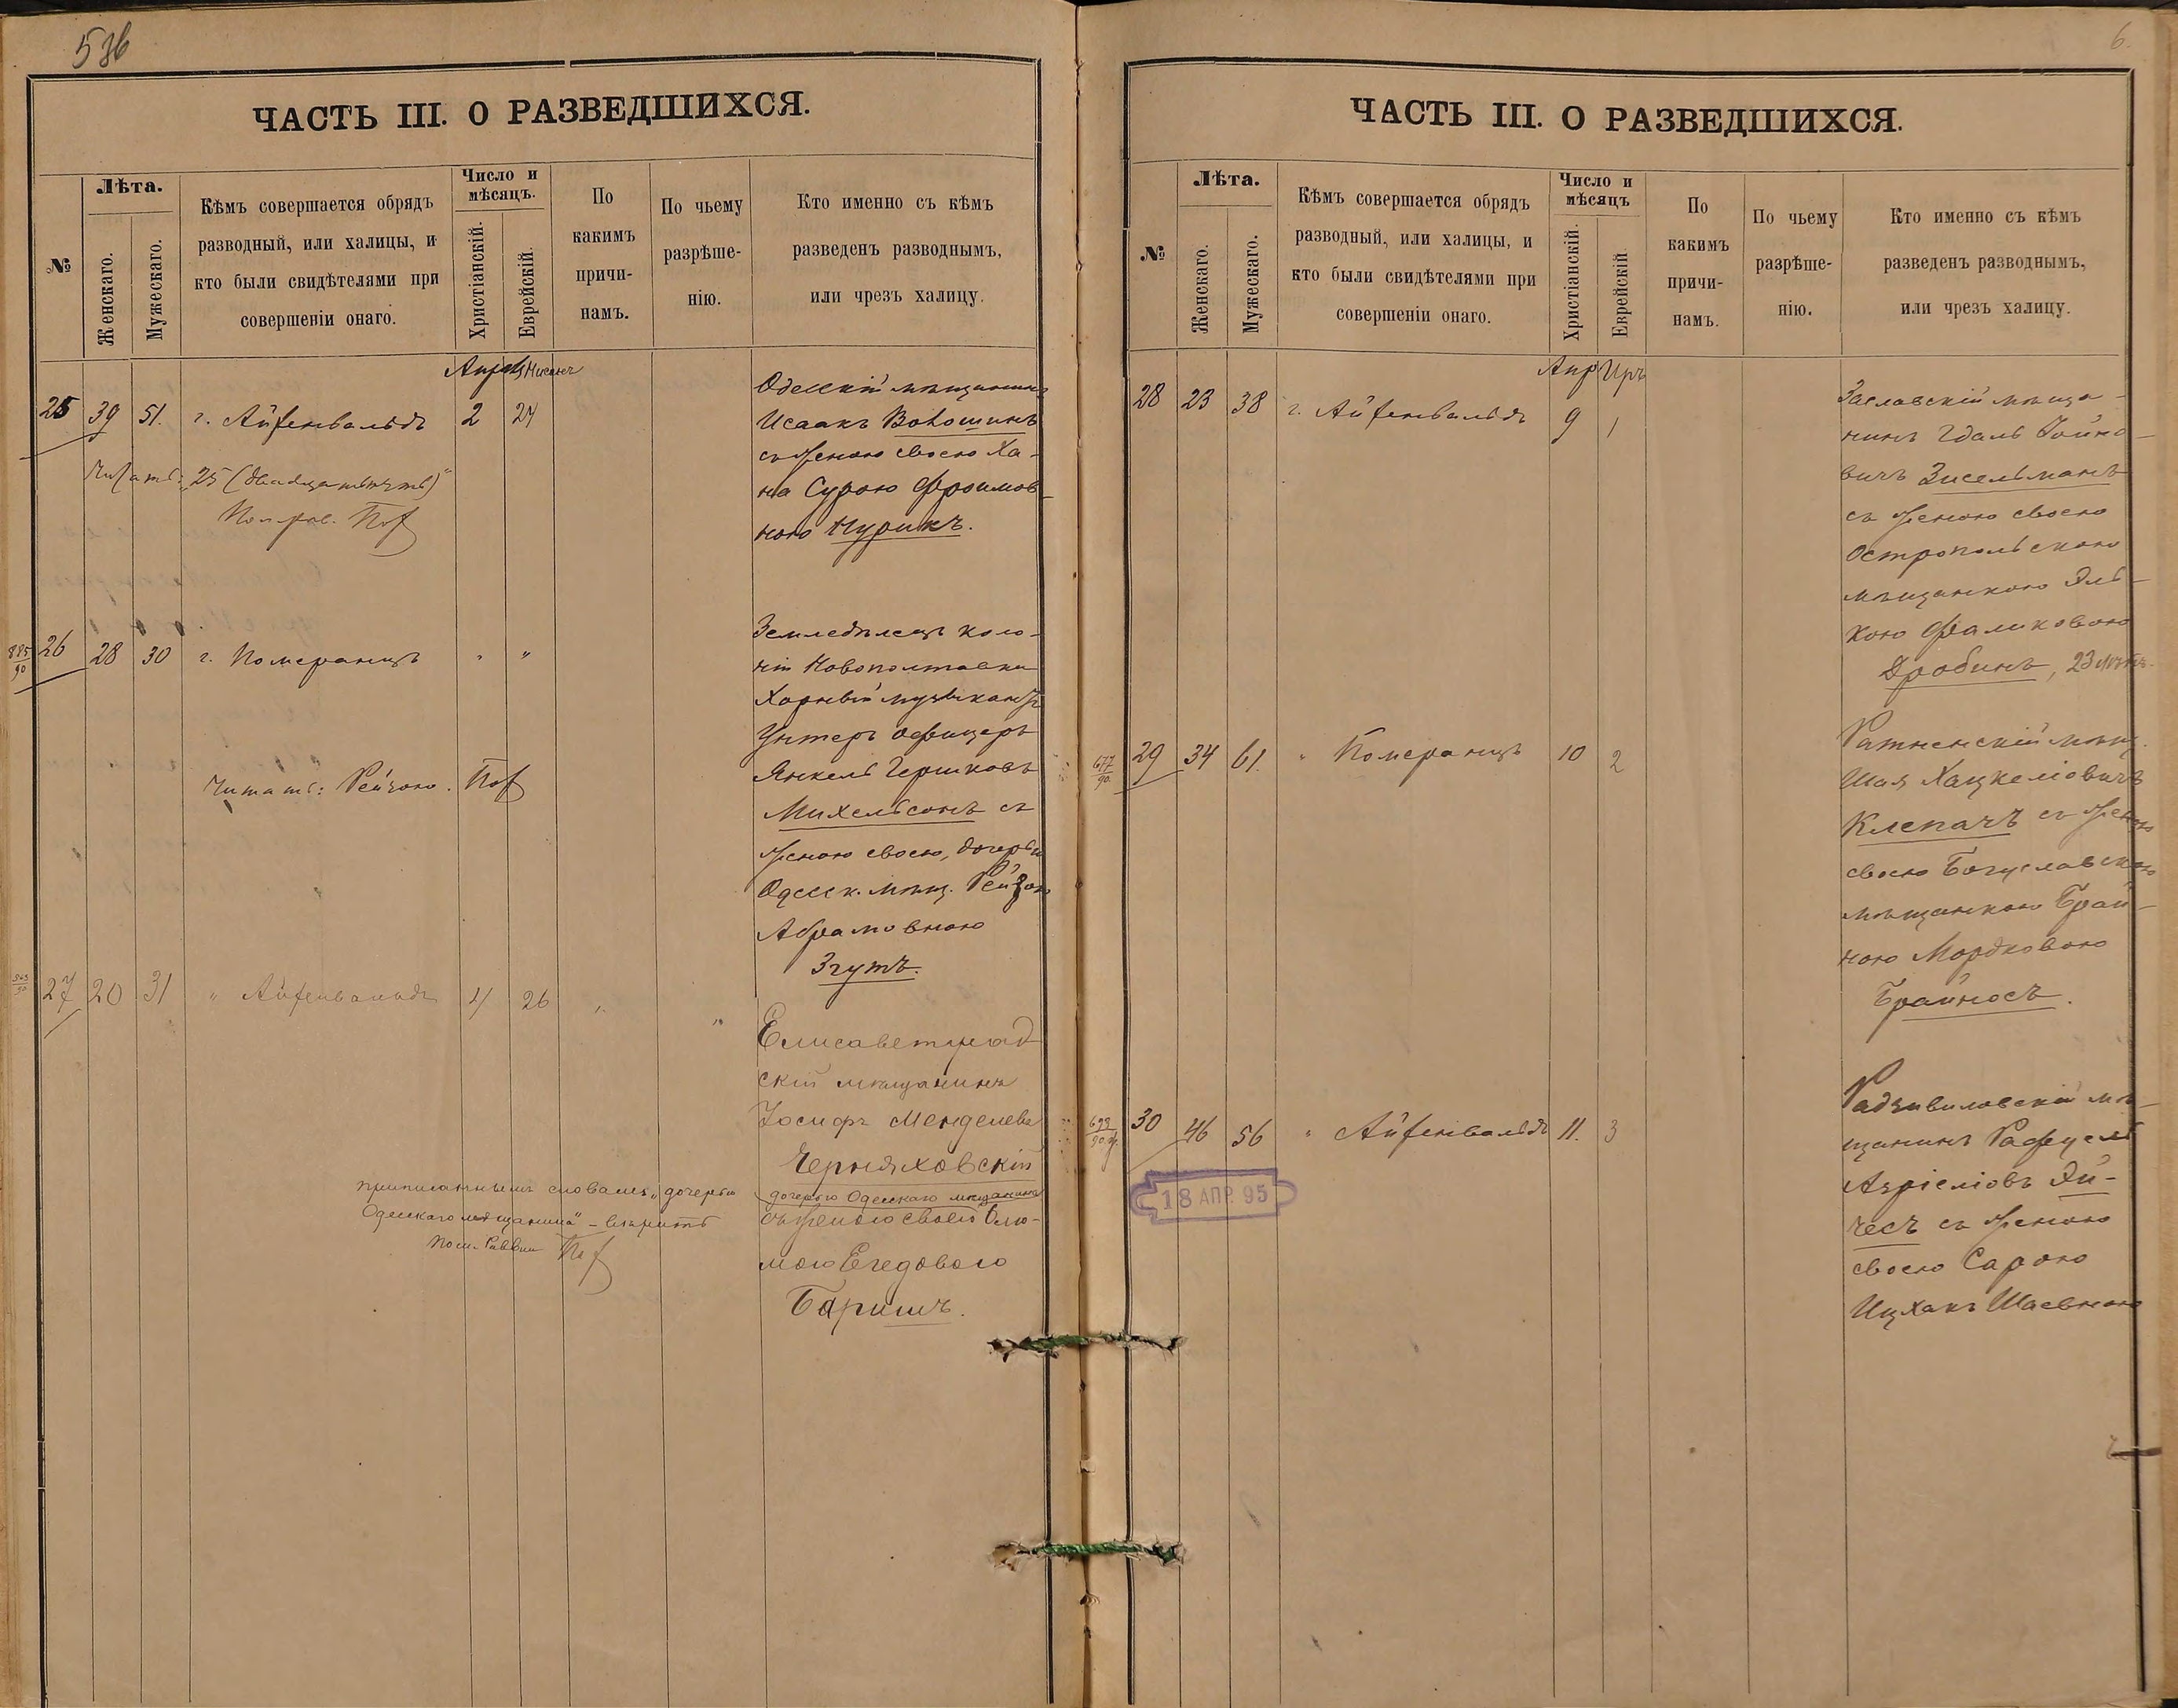 536
ЧАСТЬ III. О РАЗВЕДШИХСЯ.
№
Лѣта.
Женскаго.
Мужескаго.
Кѣмъ совершается обрядъ
разводный, или халицы, и
кто были свидѣтелями при
совершеніи онаго.
Число и
мѣсяцъ.
Христіанскій.
Еврейскій.
По
какимъ
причи-
намъ.
По чьему
разрѣше-
нію.
Кто именно съ кѣмъ
разведенъ разводнымъ,
или чрезъ халицу.
Нисанъ
25 39 51. г. Айзенвальдъ 2 24
Одесскій мѣщанинъ
Исаакъ Волошинъ
съ женою своею Ха-
на Сурою Фроимов-
ною Нурикъ.
Читать: „25 (двадцать пять)“
885/90 26 28 30 г. Померанцъ " "
Земледѣлецъ коло-
ніи Новополтавки
Хорный музыкантъ
Унтеръ офицеръ
Янкель Гершковъ
Михельсонъ съ
женою своею, дочерью
Одесск. мѣщ. Рейзою
Абрамовною
Згутъ.
Читать: Рейзою.
27 20 31 " Айзенвальдъ 4 26 " "
Елисаветград
скій мѣщанинъ
Іосифъ Менделевъ
Черняховскій
дочерью Одесскаго мѣщанина
съ женою своею Блю-
мою
Баришъ.
приписаннымъ словамъ „дочерью
Одесскаго мѣщанина“ – вѣрить
6.
ЧАСТЬ III. О РАЗВЕДШИХСЯ.
№
Лѣта.
Женскаго.
Мужескаго.
Кѣмъ совершается обрядъ
разводный, или халицы, и
кто были свидѣтелями при
совершеніи онаго.
Число и
мѣсяцъ
Христіанскій.
Еврейскій
По
какимъ
причи-
намъ.
По чьему
разрѣше-
нію.
Кто именно съ кѣмъ
разведенъ разводнымъ,
или чрезъ халицу.
Апр Иръ
28 23 38 г. Айзенвальдъ 9 1
Заславскій мѣща-
нинъ Гдаль Іойно-
вичъ Зисельманъ
съ женою своею
Остропольскою
мѣщанкою Эль-
кою Фаликовою
Дробинъ, 23 лѣтъ.
677/90 29 34 61. " Померанцъ 10 2
Ратненскій мѣщ.
Шая Хацкеліовичъ
Клепачъ съ женою
своею Богуславскою
мѣщанкою Брай-
ною Мордковою
Брайносъ.
30 46 56 " Айзенвальдъ 11. 3
Радзивиловскій мѣ-
щанинъ Рафуель
Азріеліовъ Эй-
чесъ съ женою
своею Сарою
Ицхакъ Шаевною
18 АПР. 95